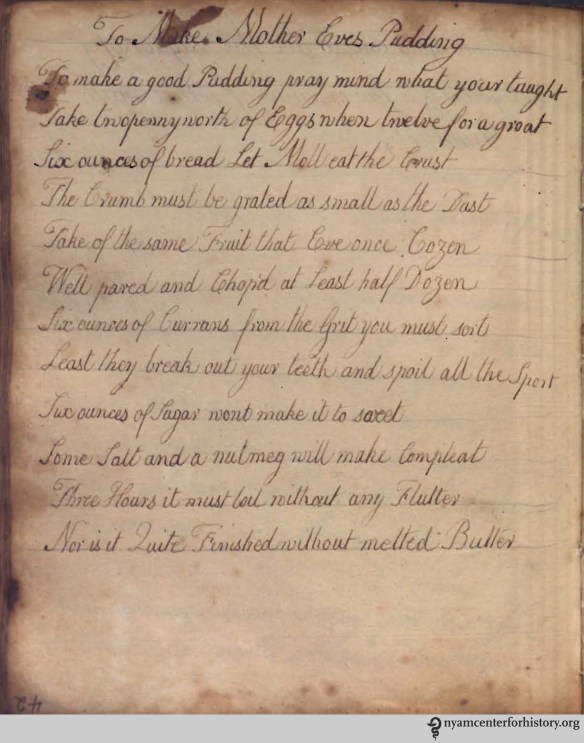 To Make Mother Eves Pudding
To make a good Pudding pray mind what your taught
Take twopennyworth of Eggs when twelve for a groat
Six ounces of bread Let Moll eat the Crust
The Crumb must be grated as small as the Dust
Take of the same Fruit that Eve once Cozen
Well pared and Chop'd at Least half Dozen
Six ounces of Currans from the Grit you must sort
Least they break out your teeth and spoil all the Sport
Six ounces of Sugar wont make it to sweet
Some Salt and a nutmeg will make Compleat
Three Hours it must boil without any Flutter
Nor is it Quite Finished without melted Butter
nyamcenterforhistory.org